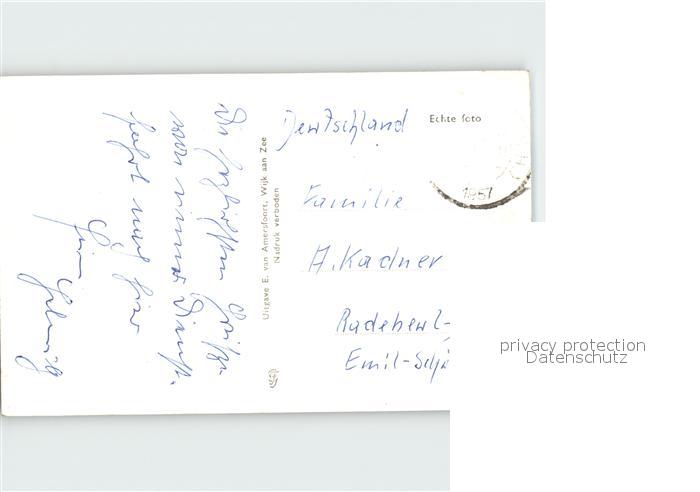 Die herzlichsten Grüße
von einer Dienst-
fahrt nach hier
Uitgave E. van Amersfoort, Wijk aan Zee
Nadruk verboden
Deutschland
Echte foto
1957
Familie
A. Kadner
Radebeul-
Emil-Sch
privacy protection
Datenschutz